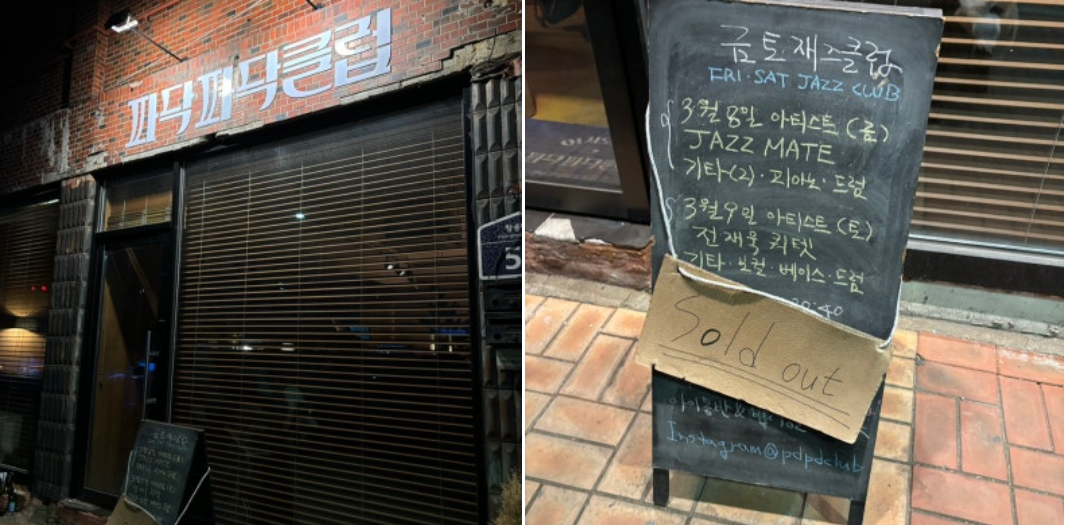 파닥파닥클럽
5
금토재즈클럽
FRI·SAT JAZZ CLUB
3월 8일 아티스트 (금)
JAZZ MATE
기타(2)·피아노·드럼
3월 9일 아티스트 (토)
전재욱 퀴텟
기타·보컬·베이스·드럼
20:40
Sold out
Instagram@pdpdclub